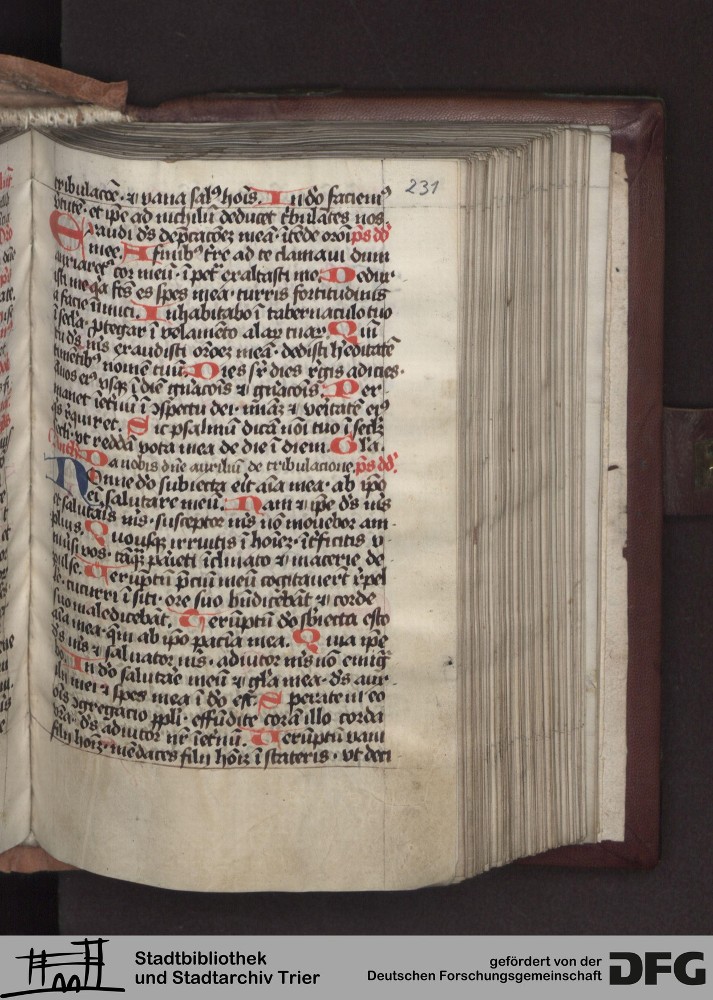 231
tribulacōe· ⁊ vana salꝰ hoīs. In dō faciemꝰ
v̄tutē· et ip̄e ad nichilū deducet t̄bulātes nos.
Exaudi ds dep̄catōeꝫ meā· ītēde orōī ps dd
mee. A finibꝰ t̄re ad te clamavi dum
anxiaret̄ cor meū· ī pet̄ exaltasti me. Dedux
isti me qa fc̄s es spes mea· turris fortitudinis
a facie inīmici. Inhabitabo ī tabernaculo tuo
ī sec̄la· ꝓtegar ī velamēto alaꝝ tuaꝝ. Qm̄
tu ds ms exaudisti oroēꝫ meā· dedisti h̄editatē
timētibꝰ nomē tuū. Dies sr̄ dies r̄gis adicies·
annos eiꝰ vsqꝫ ī diē gn̄acōis ⁊ gn̄acōis. Per
manet īet̄nū ī ɔspectu dei· mīaꝫ ⁊ veitatē eiꝰ
qs r̄quiret. Sic psalmū dicā noī tuo ī sec̄lꝫ
sec̄li· vt reddā vota mea de die ī diem. Gl̄a.
Da nobis dn̄e auxiliū de tribulacione. ps dd.
Nonne dō subiecta eit aīa mea· ab ip̄o
et salutais ms· susceptor ms nō movebor am
plius. Quousqꝫ irruitis ī hoīeꝫ· īt̄ficitis v
nūsi vos· tāqꝫ paīeti īclinato ⁊ macerie de
pulse. Verūptn̄ p̄ciū meū cogitaver̄t r̄pel
le· cucurri ī siti· ore suo bn̄dicebāt ⁊ corde
suo maledicebāt. Verūptn̄ dō sbiecta esto
aīa mea· qm̄ ab ip̄o pacīa mea. Quia ip̄e
ds ms ⁊ salvator ms· adiutor ms nō emigͣ
bo. In dō salutāe meū ⁊ gl̄a mea· ds aux
ilij mei ⁊ spes mea ī dō est. Sperate in eo
oīs ɔgregacio ppl̄i· effūdite corā illo corda
vr̄a· ds adiutor nr̄ īet̄nū. Verūptn̄ vani
filij hoīꝫ· mēdaces filij hoīꝫ ī stateris· vt deci
Stadtbibliothek
und Stadtarchiv Trier
gefördert von der
Deutschen Forschungsgemeinschaft
DFG